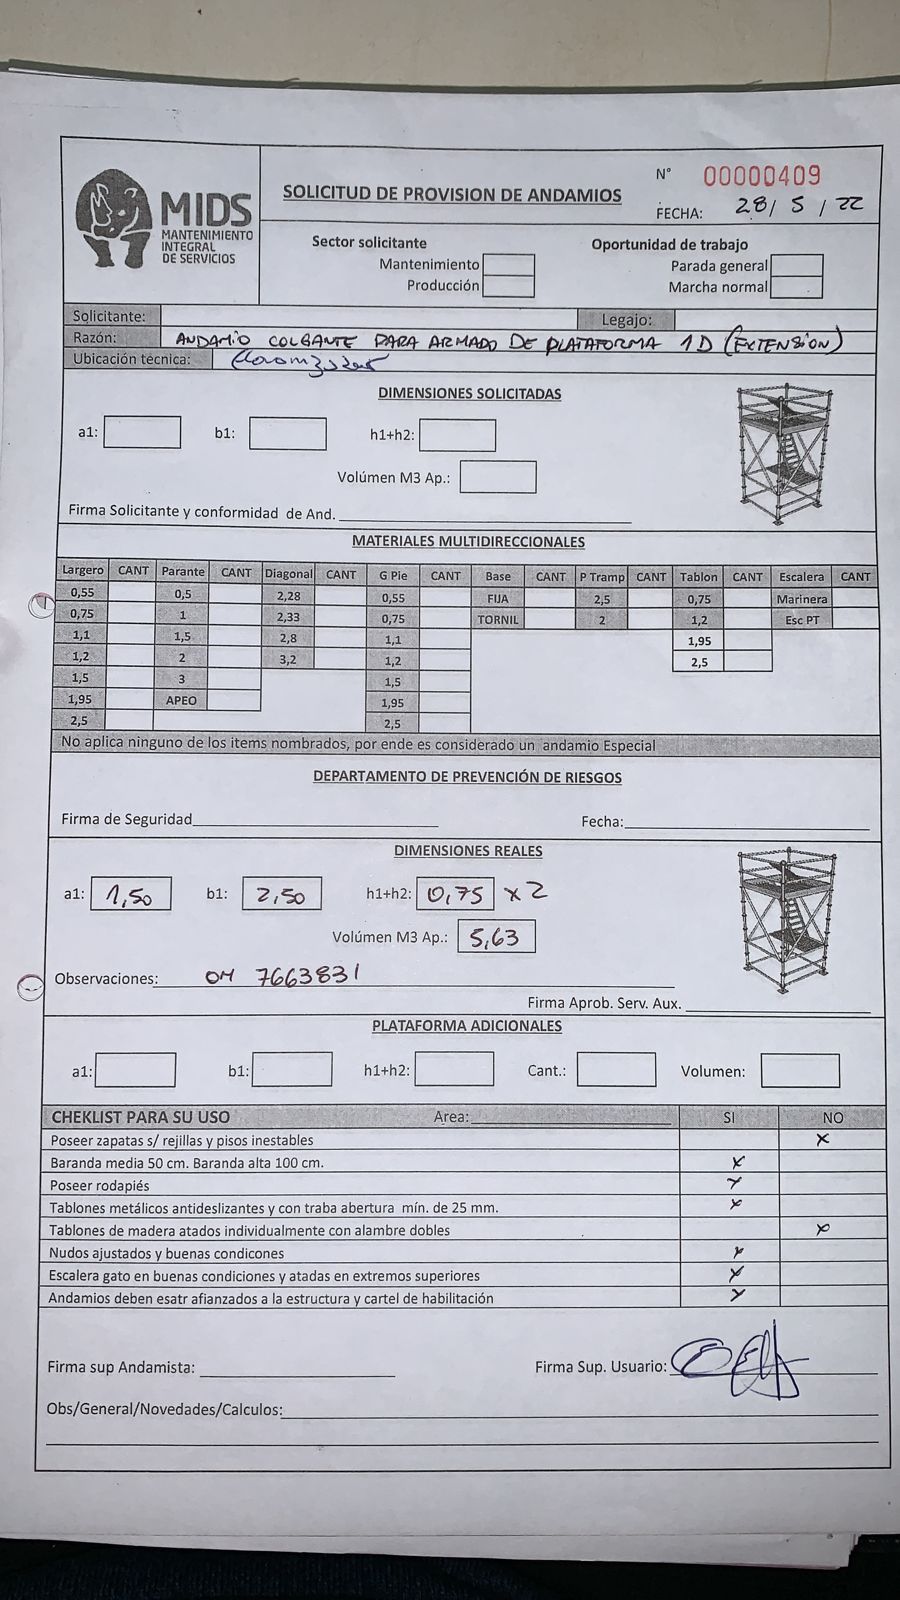 MIDS
MANTENIMIENTO
INTEGRAL
DE SERVICIOS
SOLICITUD DE PROVISION DE ANDAMIOS
N° 00000409
FECHA: 28/5/22
Sector solicitante
Mantenimiento
Producción
Oportunidad de trabajo
Parada general
Marcha normal
Solicitante: Legajo:
Razón: ANDAMIO COLGANTE PARA ARMADO DE PLATAFORMA 1D (EXTENSION)
Ubicación tecnica:
DIMENSIONES SOLICITADAS
a1: b1: h1+h2:
Volúmen M3 Ap.:
Firma Solicitante y conformidad de And.
MATERIALES MULTIDIRECCIONALES
Largero CANT Parante CANT Diagonal CANT G Pie CANT Base CANT P Tramp CANT Tablon CANT Escalera CANT
0,55 0,5 2,28 0,55 FIJA 2,5 0,75 Marinera
0,75 1 2,33 0,75 TORNIL 2 1,2 Esc PT
1,1 1,5 2,8 1,1 1,95
1,2 2 3,2 1,2 2,5
1,5 3 1,5
1,95 APEO 1,95
2,5 2,5
No aplica ninguno de los items nombrados, por ende es considerado un andamio Especial
DEPARTAMENTO DE PREVENCIÓN DE RIESGOS
Firma de Seguridad Fecha:
DIMENSIONES REALES
a1: 1,50 b1: 2,50 h1+h2: 0,75 x 2
Volúmen M3 Ap.: 5,63
Observaciones: OM 7663831
Firma Aprob. Serv. Aux.
PLATAFORMA ADICIONALES
a1: b1: h1+h2: Cant.: Volumen:
CHEKLIST PARA SU USO Area: SI NO
Poseer zapatas s/ rejillas y pisos inestables x
Baranda media 50 cm. Baranda alta 100 cm. x
Poseer rodapiés x
Tablones metálicos antideslizantes y con traba abertura mín. de 25 mm. x
Tablones de madera atados individualmente con alambre dobles x
Nudos ajustados y buenas condicones x
Escalera gato en buenas condiciones y atadas en extremos superiores x
Andamios deben esatr afianzados a la estructura y cartel de habilitación x
Firma sup Andamista: Firma Sup. Usuario:
Obs/General/Novedades/Calculos: